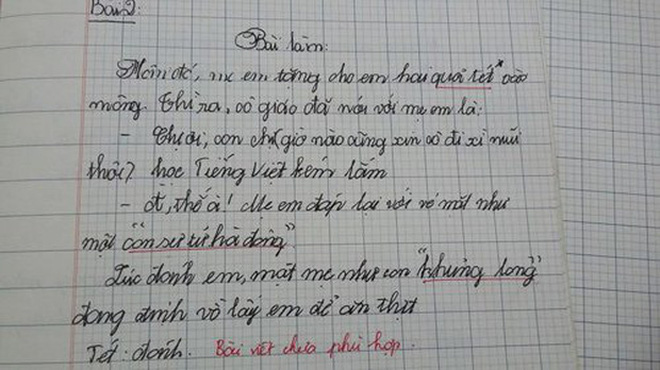 Bài 2:
Bài làm:
Hôm đó, mẹ em tặng cho em hai quơi tét* vào
mông. Thì ra, cô giáo đã nói với mẹ em là:
- Chị ơi, con chị giờ nào cũng xin cô đi xì mũi
thôi? học Tiếng Việt kém lắm
- Ờ, thế à! Mẹ em đáp lại với vẻ mặt như
một "con sư tử hà đông"
Lúc đánh em, mặt mẹ như con "khủng long"
đang định vồ lấy em để ăn thịt
Tét: đánh. Bài viết chưa phù hợp.